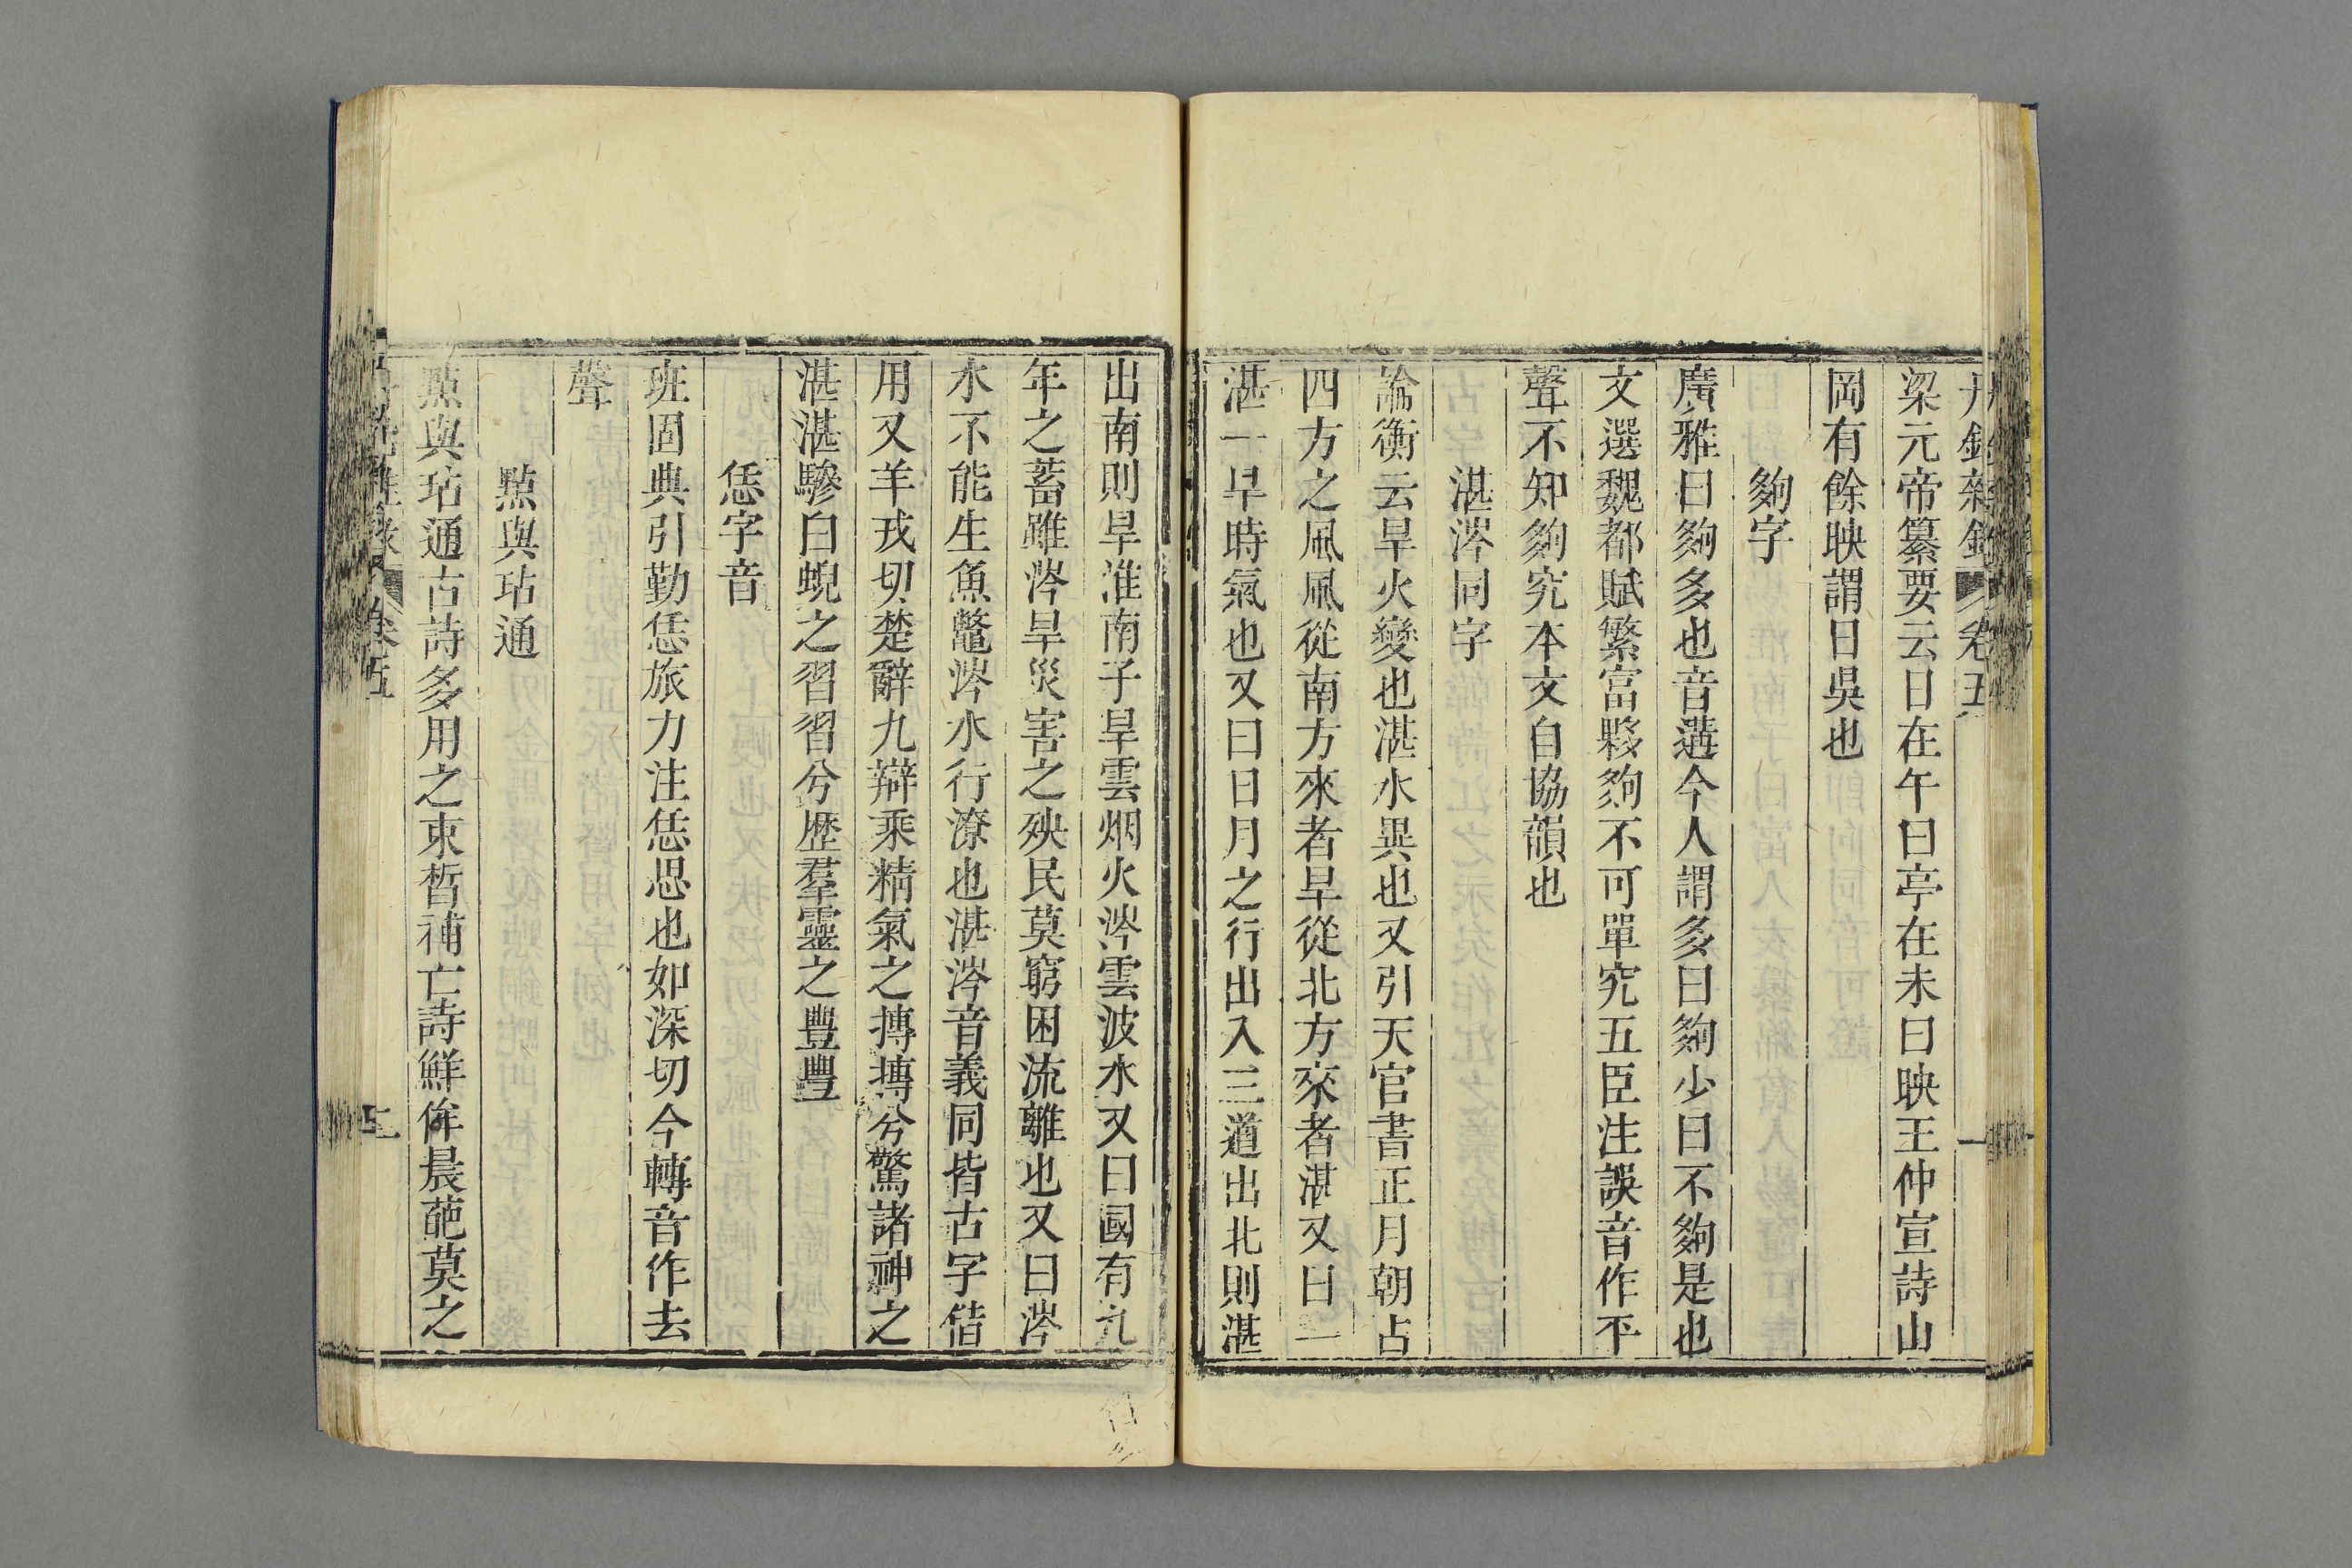 丹鉛雜錄 卷五
梁元帝纂要云日在午曰亭在未曰映王仲宣詩山
岡有餘映謂日吳也
夠字
廣雅曰夠多也音遘今人謂多曰夠少曰不夠是也
文選魏都賦繁富夥夠不可單究五臣注誤音作平
聲不知夠究本文自協韻也
湛涔同字
論衡云旱火變也湛水異也又引天官書正月朝占
四方之風風從南方來者旱從北方來者湛又曰一
湛一旱時氣也又曰日月之行出入三道出北則湛
出南則旱淮南子旱雲烟火涔雲波水又曰國有九
年之蓄雖涔旱災害之殃民莫窮困流離也又曰涔
水不能生魚鼈涔水行潦也湛涔音義同皆古字偕
用又羊戎切楚辭九辯乘精氣之摶摶兮驚諸神之
湛湛驂白蜺之習習兮歷羣靈之豐豐
恁字音
班固典引勤恁旅力注恁思也如深切今轉音作去
聲
點與玷通
點與玷通古詩多用之束皙補亡詩鮮侔晨葩莫之
卷五